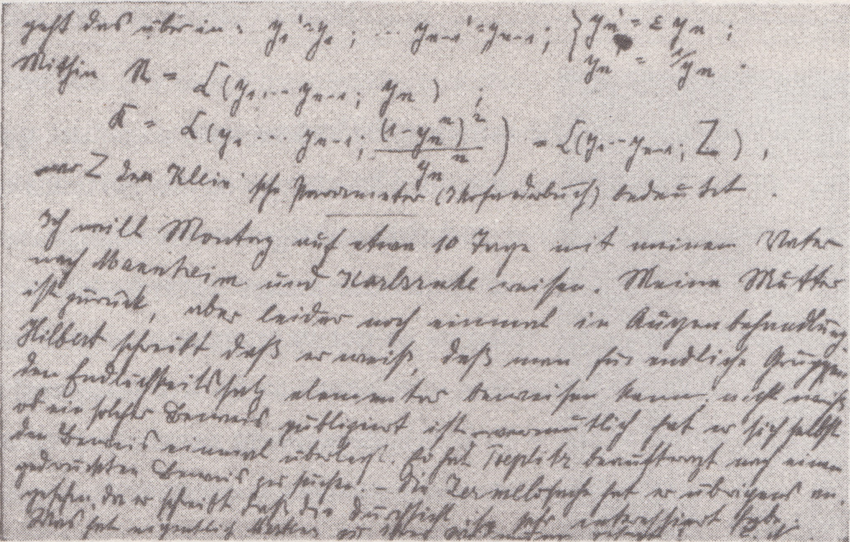 geht das über in: y₁' = y₁; ··· yₙ₋₁' = yₙ₋₁; } yₙ' = ε yₙ;
yₙ' = 1/yₙ.
Mithin = L(y₁ ··· yₙ₋₁; yₙ);
K = L(y₁ ··· yₙ₋₁; (1-yₙⁿ)²/yₙⁿ) = L(y₁ ··· yₙ₋₁; Z),
wo Z den Klein'sche Parameter (Ikosaederbuch) bedeutet.
Ich will Montag auf etwa 10 Tage mit meinem Vater
nach Mannheim und Karlsruhe reisen. Meine Mutter
ist zurück, aber leider noch einmal in Augenbehandlung.
Hilbert schreibt daß er weiß, daß man für endliche Gruppen
den Endlichkeitssatz elementar beweisen kann; nicht weiß
ob ein solcher Beweis publiziert ist vermutlich hat er sich selbst
den Beweis einmal überlegt. Er hat Toeplitz beauftragt nach einem
gedruckten Beweis zu suchen. – Die hat er übrigens an-
gesehen, da er schreibt daß die Durchsicht ihn sehr interessiert
Was hat eigentlich